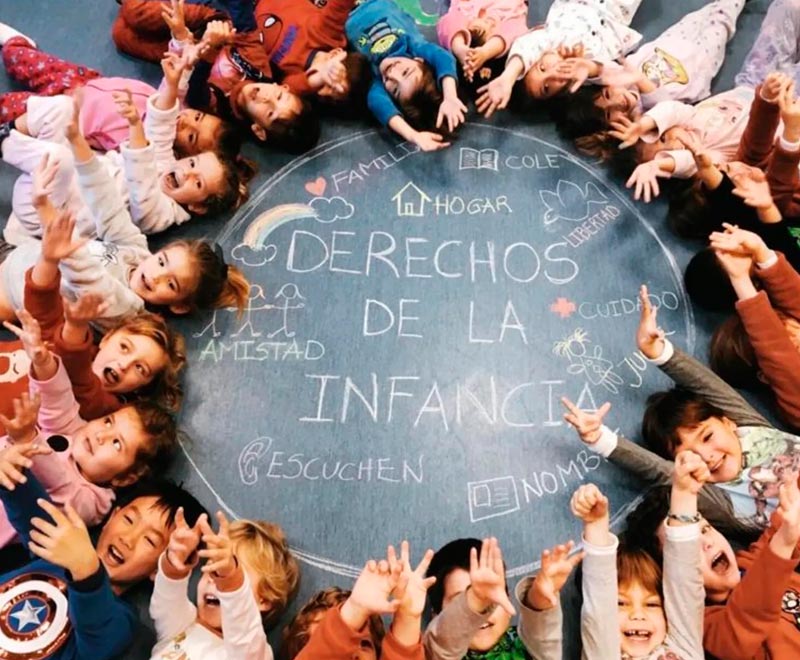 FAMILIA
COLE
HOGAR
LIBERTAD
DERECHOS
DE LA
INFANCIA
CUIDADO
AMISTAD
ESCUCHEN